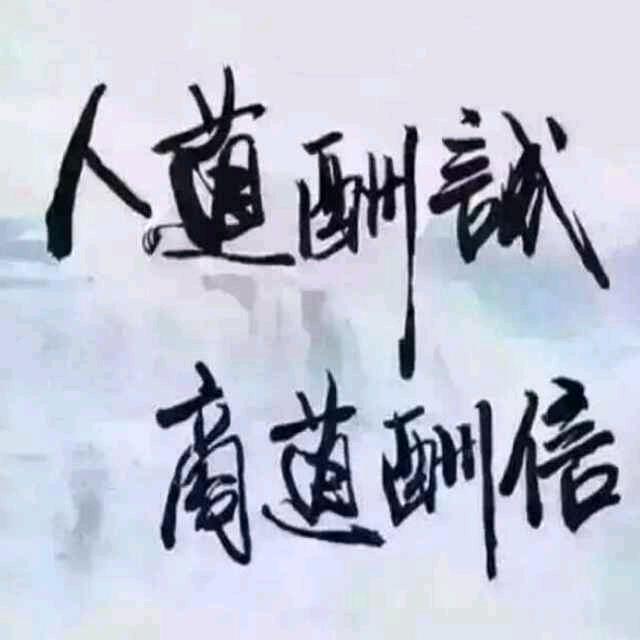 人道酬誠
商道酬信